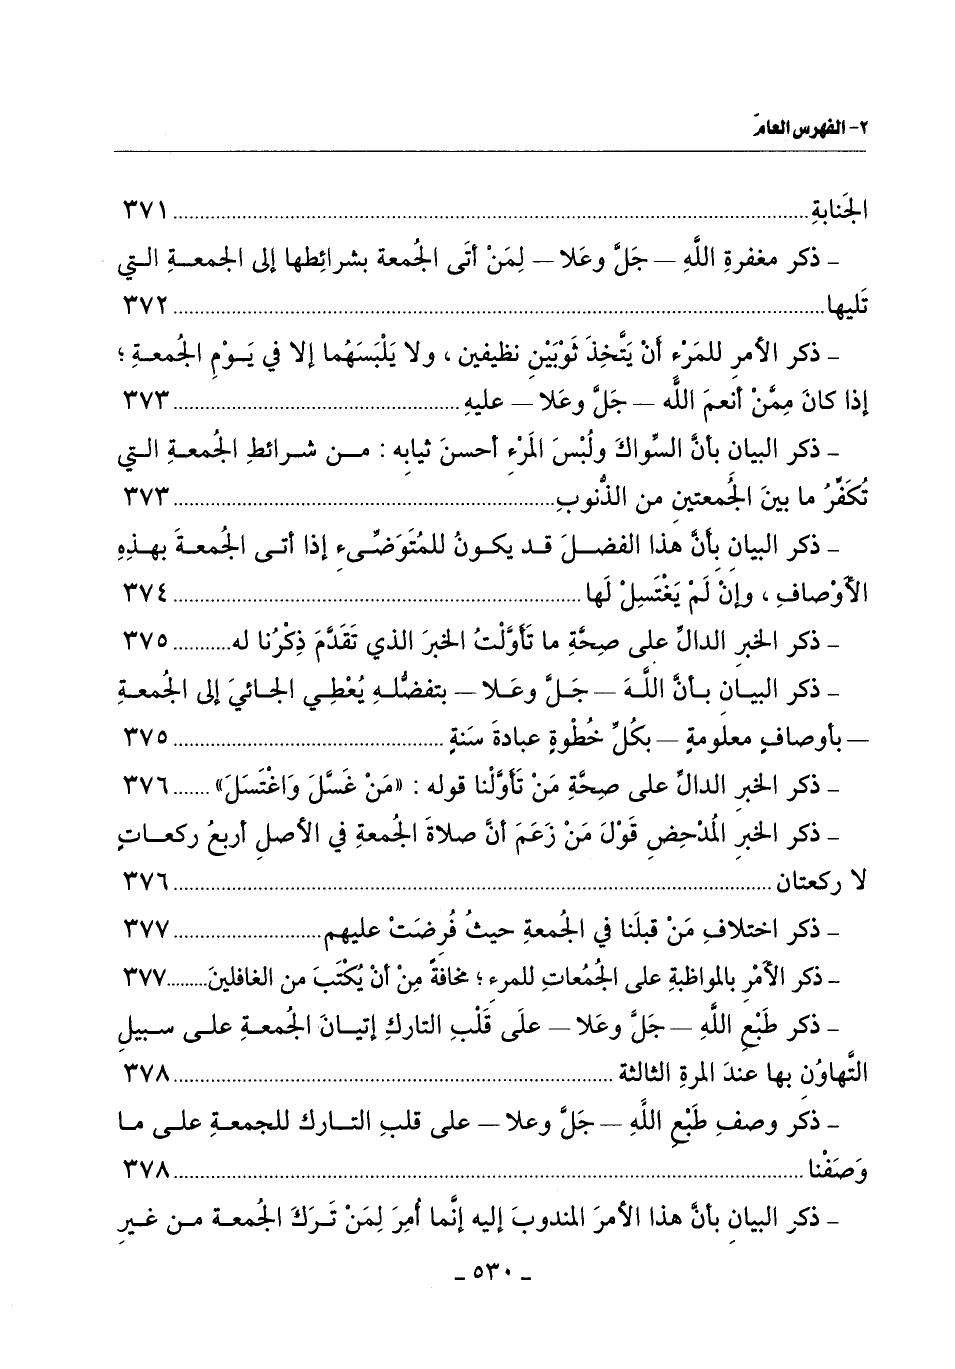 ٢- الفهرس العامّ
الجَنابةِ ........ ٣٧١
- ذكر مغفرةِ اللَّهِ — جَلَّ وعَلا — لِمَنْ أتَى الجُمعة بشرائطها إلى الجمعـــةِ الــتي
تَليها ........ ٣٧٢
- ذكر الأمرِ للمَرْءِ أنْ يَتَّخِذَ ثَوْبَيْنِ نظيفين ، ولا يَلْبَسَهُما إلا في يَـوْمِ الجُمعـةِ ؛
إذا كانَ مِمَّنْ أنعمَ اللَّه — جَلَّ وعَلا — عليهِ ........ ٣٧٣
- ذكر البيان بأنَّ السِّواكَ ولُبْسَ المَرْءِ أحسنَ ثيابِه : مــن شــرائطِ الجُمعــةِ الــتي
تُكَفِّرُ ما بينَ الجُمعتينِ من الذُّنوبِ ........ ٣٧٣
- ذكر البيانِ بأنَّ هذا الفضــلَ قــد يكــونُ للمُتَوَضِّــىءِ إذا أتــى الجُمعــةَ بهــذِهِ
الأَوْصافِ ، وإنْ لَمْ يَغْتَسِلْ لَها ........ ٣٧٤
- ذكر الخبرِ الدالِّ على صِحَّةِ ما تَأَوَّلْتُ الخبرَ الذي تَقَدَّمَ ذِكْرُنا له ........ ٣٧٥
- ذكر البيــان بــأنَّ اللَّــهَ — جَــلَّ وعَــلا — بتفضُّلــهِ يُعْطِــي الجــائيَ إلى الجُمعــةِ
— بأوصافٍ معلومةٍ — بكُلِّ خُطْوةٍ عبادةَ سَنةٍ ........ ٣٧٥
- ذكر الخبرِ الدالِّ على صِحَّةِ مَنْ تَأَوَّلْنا قوله : «مَنْ غَسَّلَ وَاغْتَسَلَ» ........ ٣٧٦
- ذكر الخبرِ المُدْحِضِ قَوْلَ مَنْ زَعَمَ أنَّ صلاةَ الجُمعةِ في الأصلِ أربعُ ركعــاتٍ
لا ركعتان ........ ٣٧٦
- ذكر اختلافِ مَنْ قبلَنا في الجُمعةِ حيثُ فُرضَتْ عليهم ........ ٣٧٧
- ذكر الأمْرِ بالمواظبةِ على الجُمُعاتِ للمرء ؛ مخافةً مِنْ أنْ يُكْتَبَ من الغافلينَ ........ ٣٧٧
- ذكر طَبْعِ اللَّهِ — جَلَّ وعَلا — علَى قَلْبِ التاركِ إتيــانَ الجُمعةِ علــى ســبيلِ
التَّهاوُنِ بها عندَ المرةِ الثالثة ........ ٣٧٨
- ذكر وصفِ طَبْعِ اللَّهِ — جَلَّ وعلا — على قلبِ التــارك للجمعــةِ علــى مــا
وَصَفْنا ........ ٣٧٨
- ذكر البيانِ بأنَّ هذا الأمرَ المندوبَ إليه إنَّما أُمِرَ لِمَنْ تَـرَكَ الجُمعــة مــن غــيرِ
- ٥٣٠ -